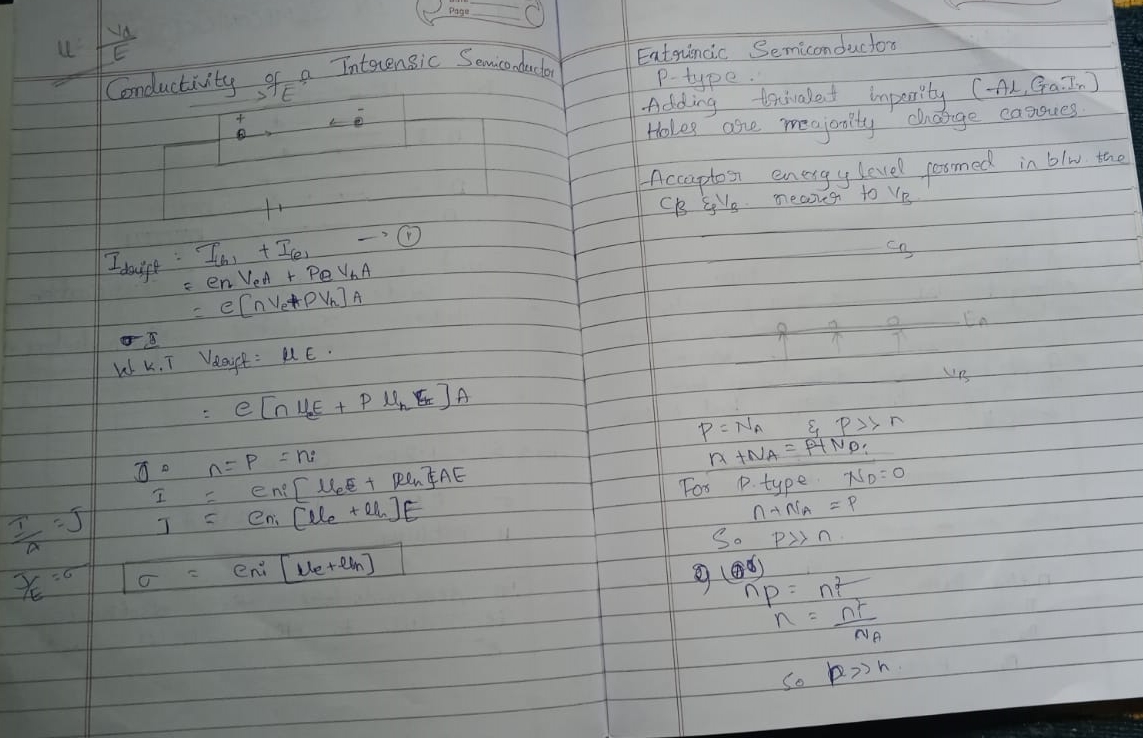 Page
μ = Vd/E
Conductivity of a Intrensic Semiconductor
→ E
+ -
e e
I drift = I(h) + I(e) → ①
= enVeA + PeVhA
= e[nVe+PVh]A
W.K.T Vdrift = μE.
= e[n μeE + P μh E]A
J = n=P = ni
I = eni[μeE + μh]AE
J = eni [μe + μh]E
I/A = J
J/E = σ
σ = eni [μe+μh]
Extrincic Semiconductor
P-type.
Adding trivalet imperity (-Al, Ga.In)
Holes are meajority charge carries.
-Accaptor energy level formed in b/w the
CB & VB nearer to VB
CB
EA
VB
P = NA & P>>n
n + NA = P+ND.
For P-type ND=0
n+NA = P
So P>>n.
2)
np = ni²
n = ni²/NA
So p>>n.